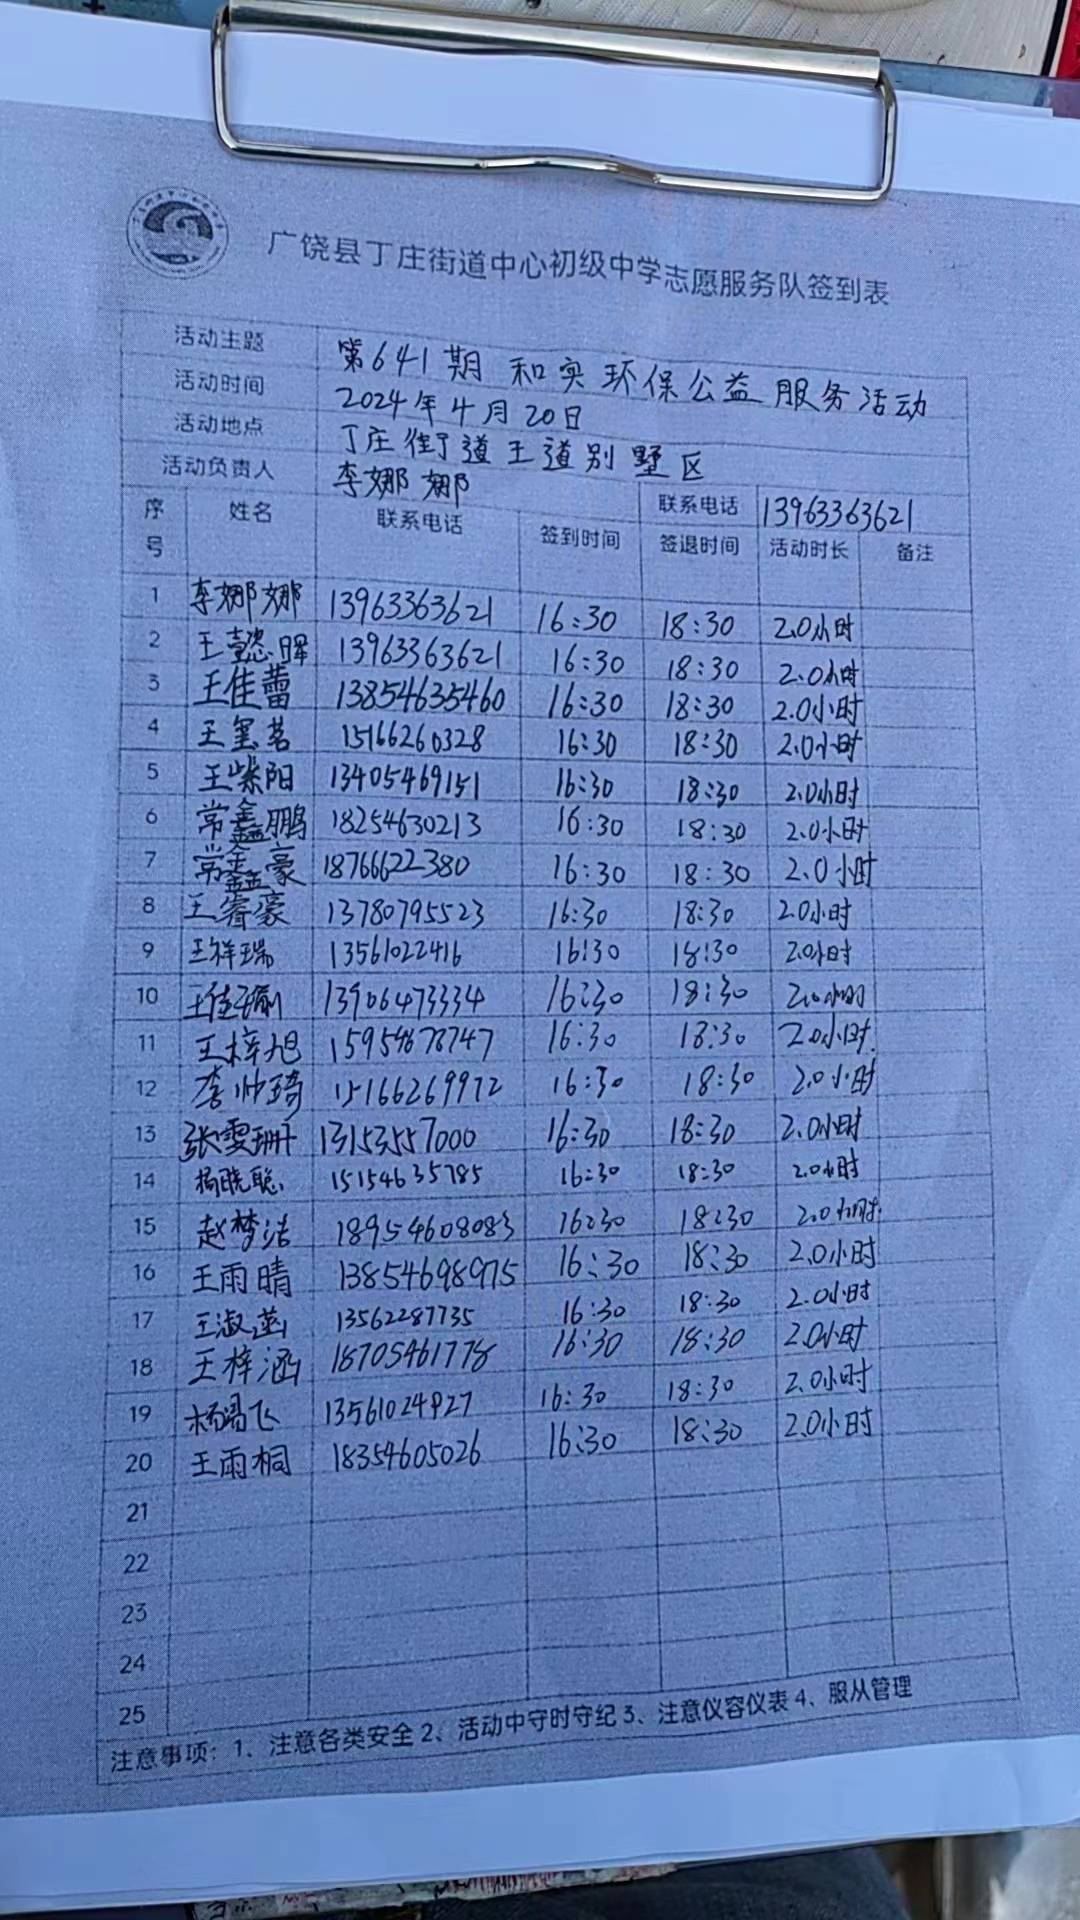 广饶县丁庄街道中心初级中学志愿服务队签到表
活动主题 第641期 和实环保公益服务活动
活动时间 2024年4月20日
活动地点 丁庄街道王道别墅区
活动负责人 李娜娜 联系电话 13963363621
序号 姓名 联系电话 签到时间 签退时间 活动时长 备注
1 李娜娜 13963363621 16:30 18:30 2.0小时
2 王懿晖 13963363621 16:30 18:30 2.0小时
3 王佳蕾 13854635460 16:30 18:30 2.0小时
4 王玺茗 15166260328 16:30 18:30 2.0小时
5 王紫阳 13405469151 16:30 18:30 2.0小时
6 常鑫鹏 18254630213 16:30 18:30 2.0小时
7 常鑫豪 18766622380 16:30 18:30 2.0小时
8 王睿豪 13780795523 16:30 18:30 2.0小时
9 王祥瑞 13561022416 16:30 18:30 2.0小时
10 王佳瑜 13906473334 16:30 18:30 2.0小时
11 王梓旭 15954678747 16:30 18:30 2.0小时
12 李帅琦 15166269972 16:30 18:30 2.0小时
13 张雯珊 13153557000 16:30 18:30 2.0小时
14 杨晓聪 15154635785 16:30 18:30 2.0小时
15 赵梦洁 18954608083 16:30 18:30 2.0小时
16 王雨晴 13854698975 16:30 18:30 2.0小时
17 王淑菡 13562287735 16:30 18:30 2.0小时
18 王梓涵 18705461778 16:30 18:30 2.0小时
19 杨鸿飞 13561024927 16:30 18:30 2.0小时
20 王雨桐 18354605026 16:30 18:30 2.0小时
21
22
23
24
25
注意事项：1、注意各类安全 2、活动中守时守纪 3、注意仪容仪表 4、服从管理